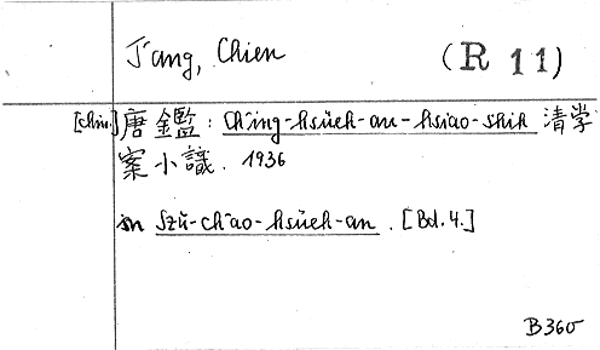 T'ang, Chien (R 11)
[chin.] 唐鑑: Ch'ing-hsüeh-an-hsiao-shih 清学
案小識. 1936
in Szŭ-ch'ao-hsüeh-an. [Bd. 4.]
B360